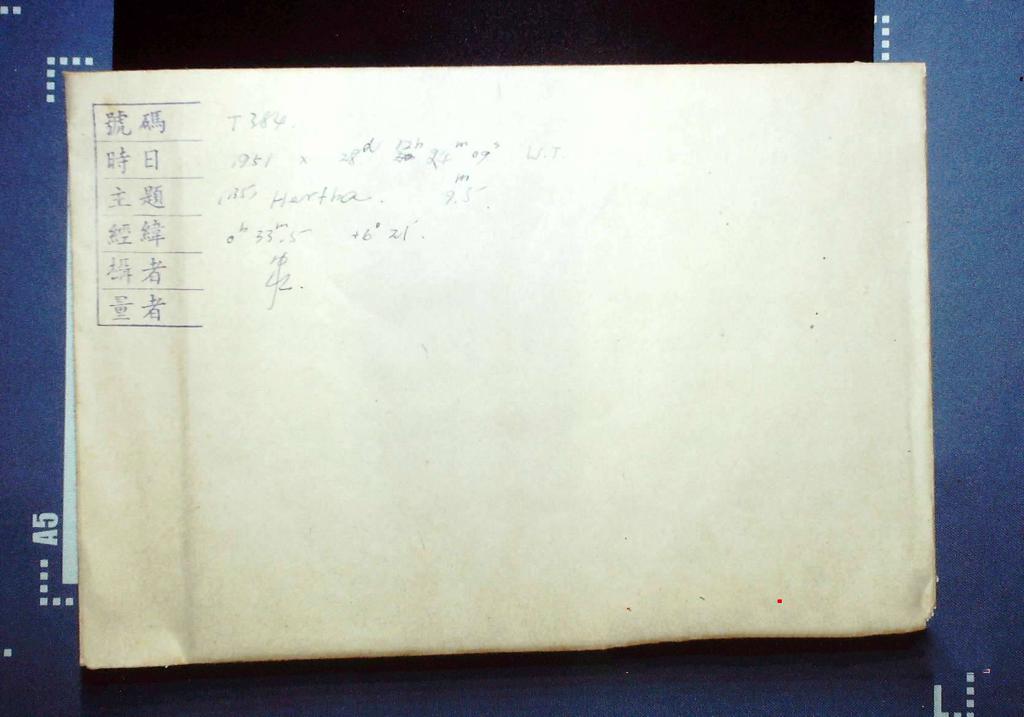 號碼 T 384.
時日 1951 X 28ᵈ 12ʰ 24ᵐ 09ˢ U.T.
主題 (135) Hertha. 9.5ᵐ.
經緯 0ʰ 33ᵐ.5 +6° 21'.
攝者
量者
A5